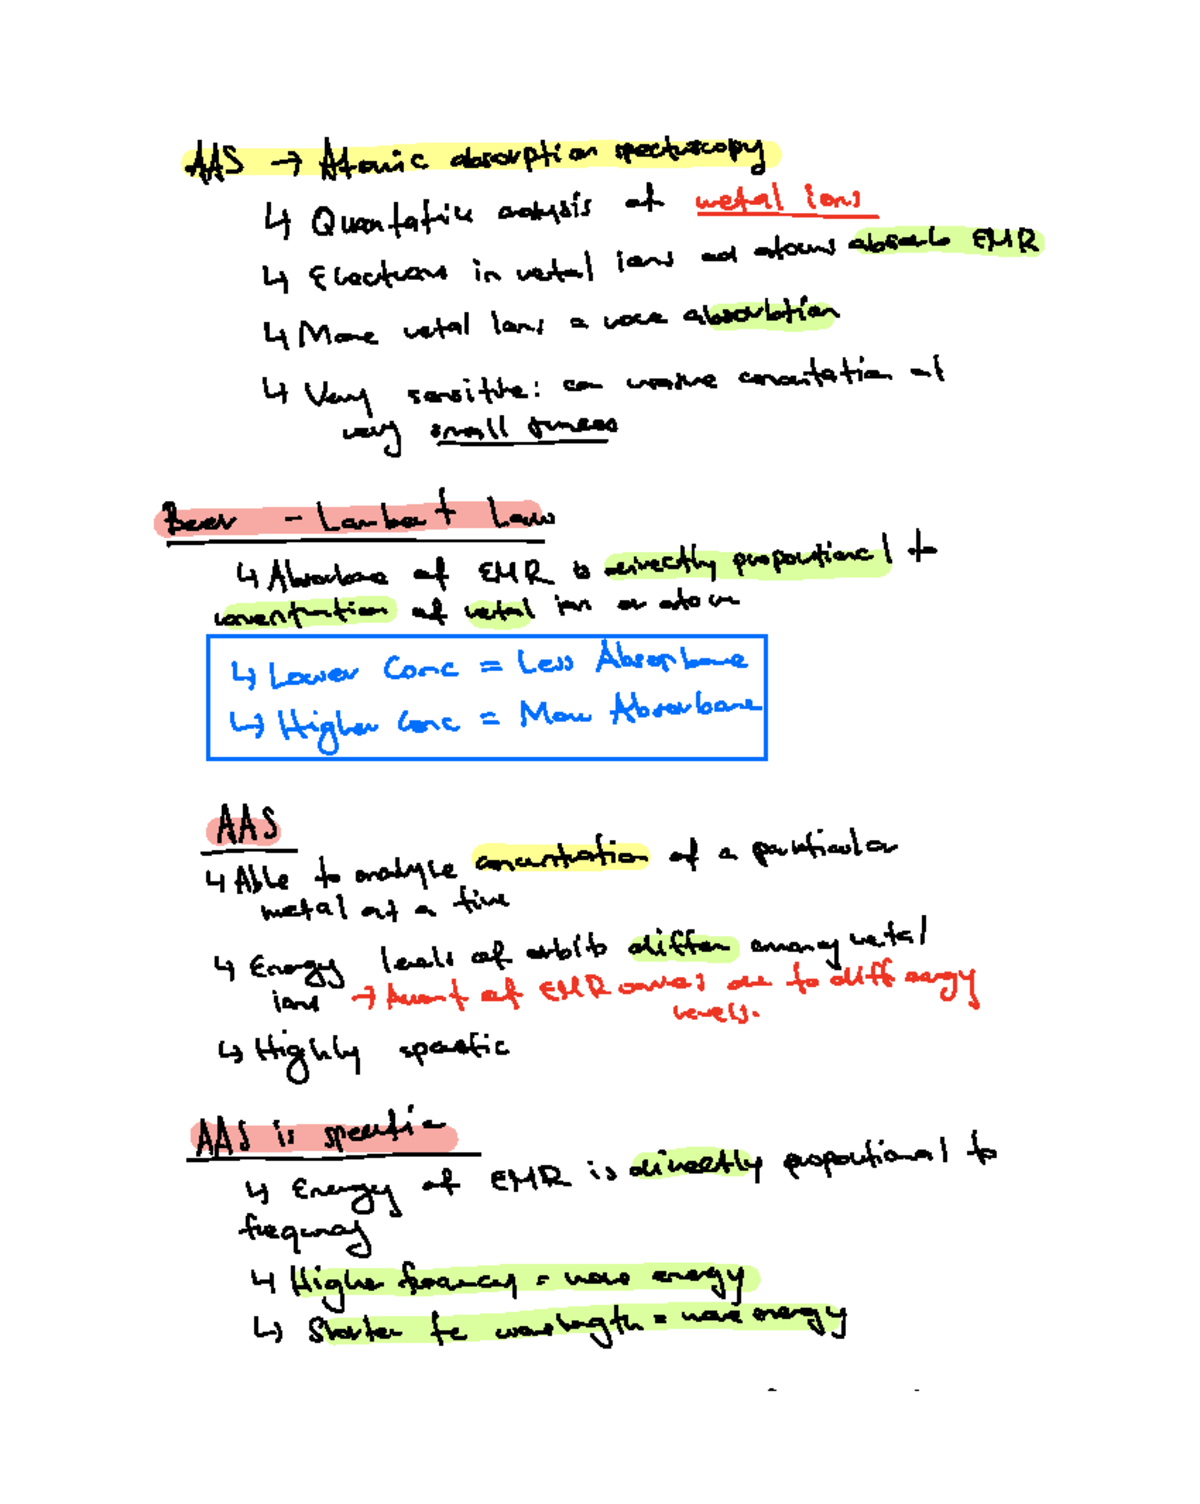 AAS → Atomic absorption spectroscopy
↳ Quantative analysis of metal ions
↳ Electrons in metal ions and atoms absorb EMR
↳ More metal ions = more absorbtion
↳ Very sensitive: can measure concentration at
very small
Beer - Lambert Law
↳ Absorbance of EMR is directly proportional to
concentration of metal ion or atom
↳ Lower Conc = Less Absorbance
↳ Higher Conc = More Absorbance
AAS
↳ Able to analyse concentration of a particular
metal at a time
↳ Energy levels of orbits differ among metal
ions → Amount of EMR due to diff energy
levels.
↳ Highly specific
AAS is specific
↳ Energy of EMR is directly proportional to
frequency
↳ Higher frequency = more energy
↳ Shorter wavelength = more energy